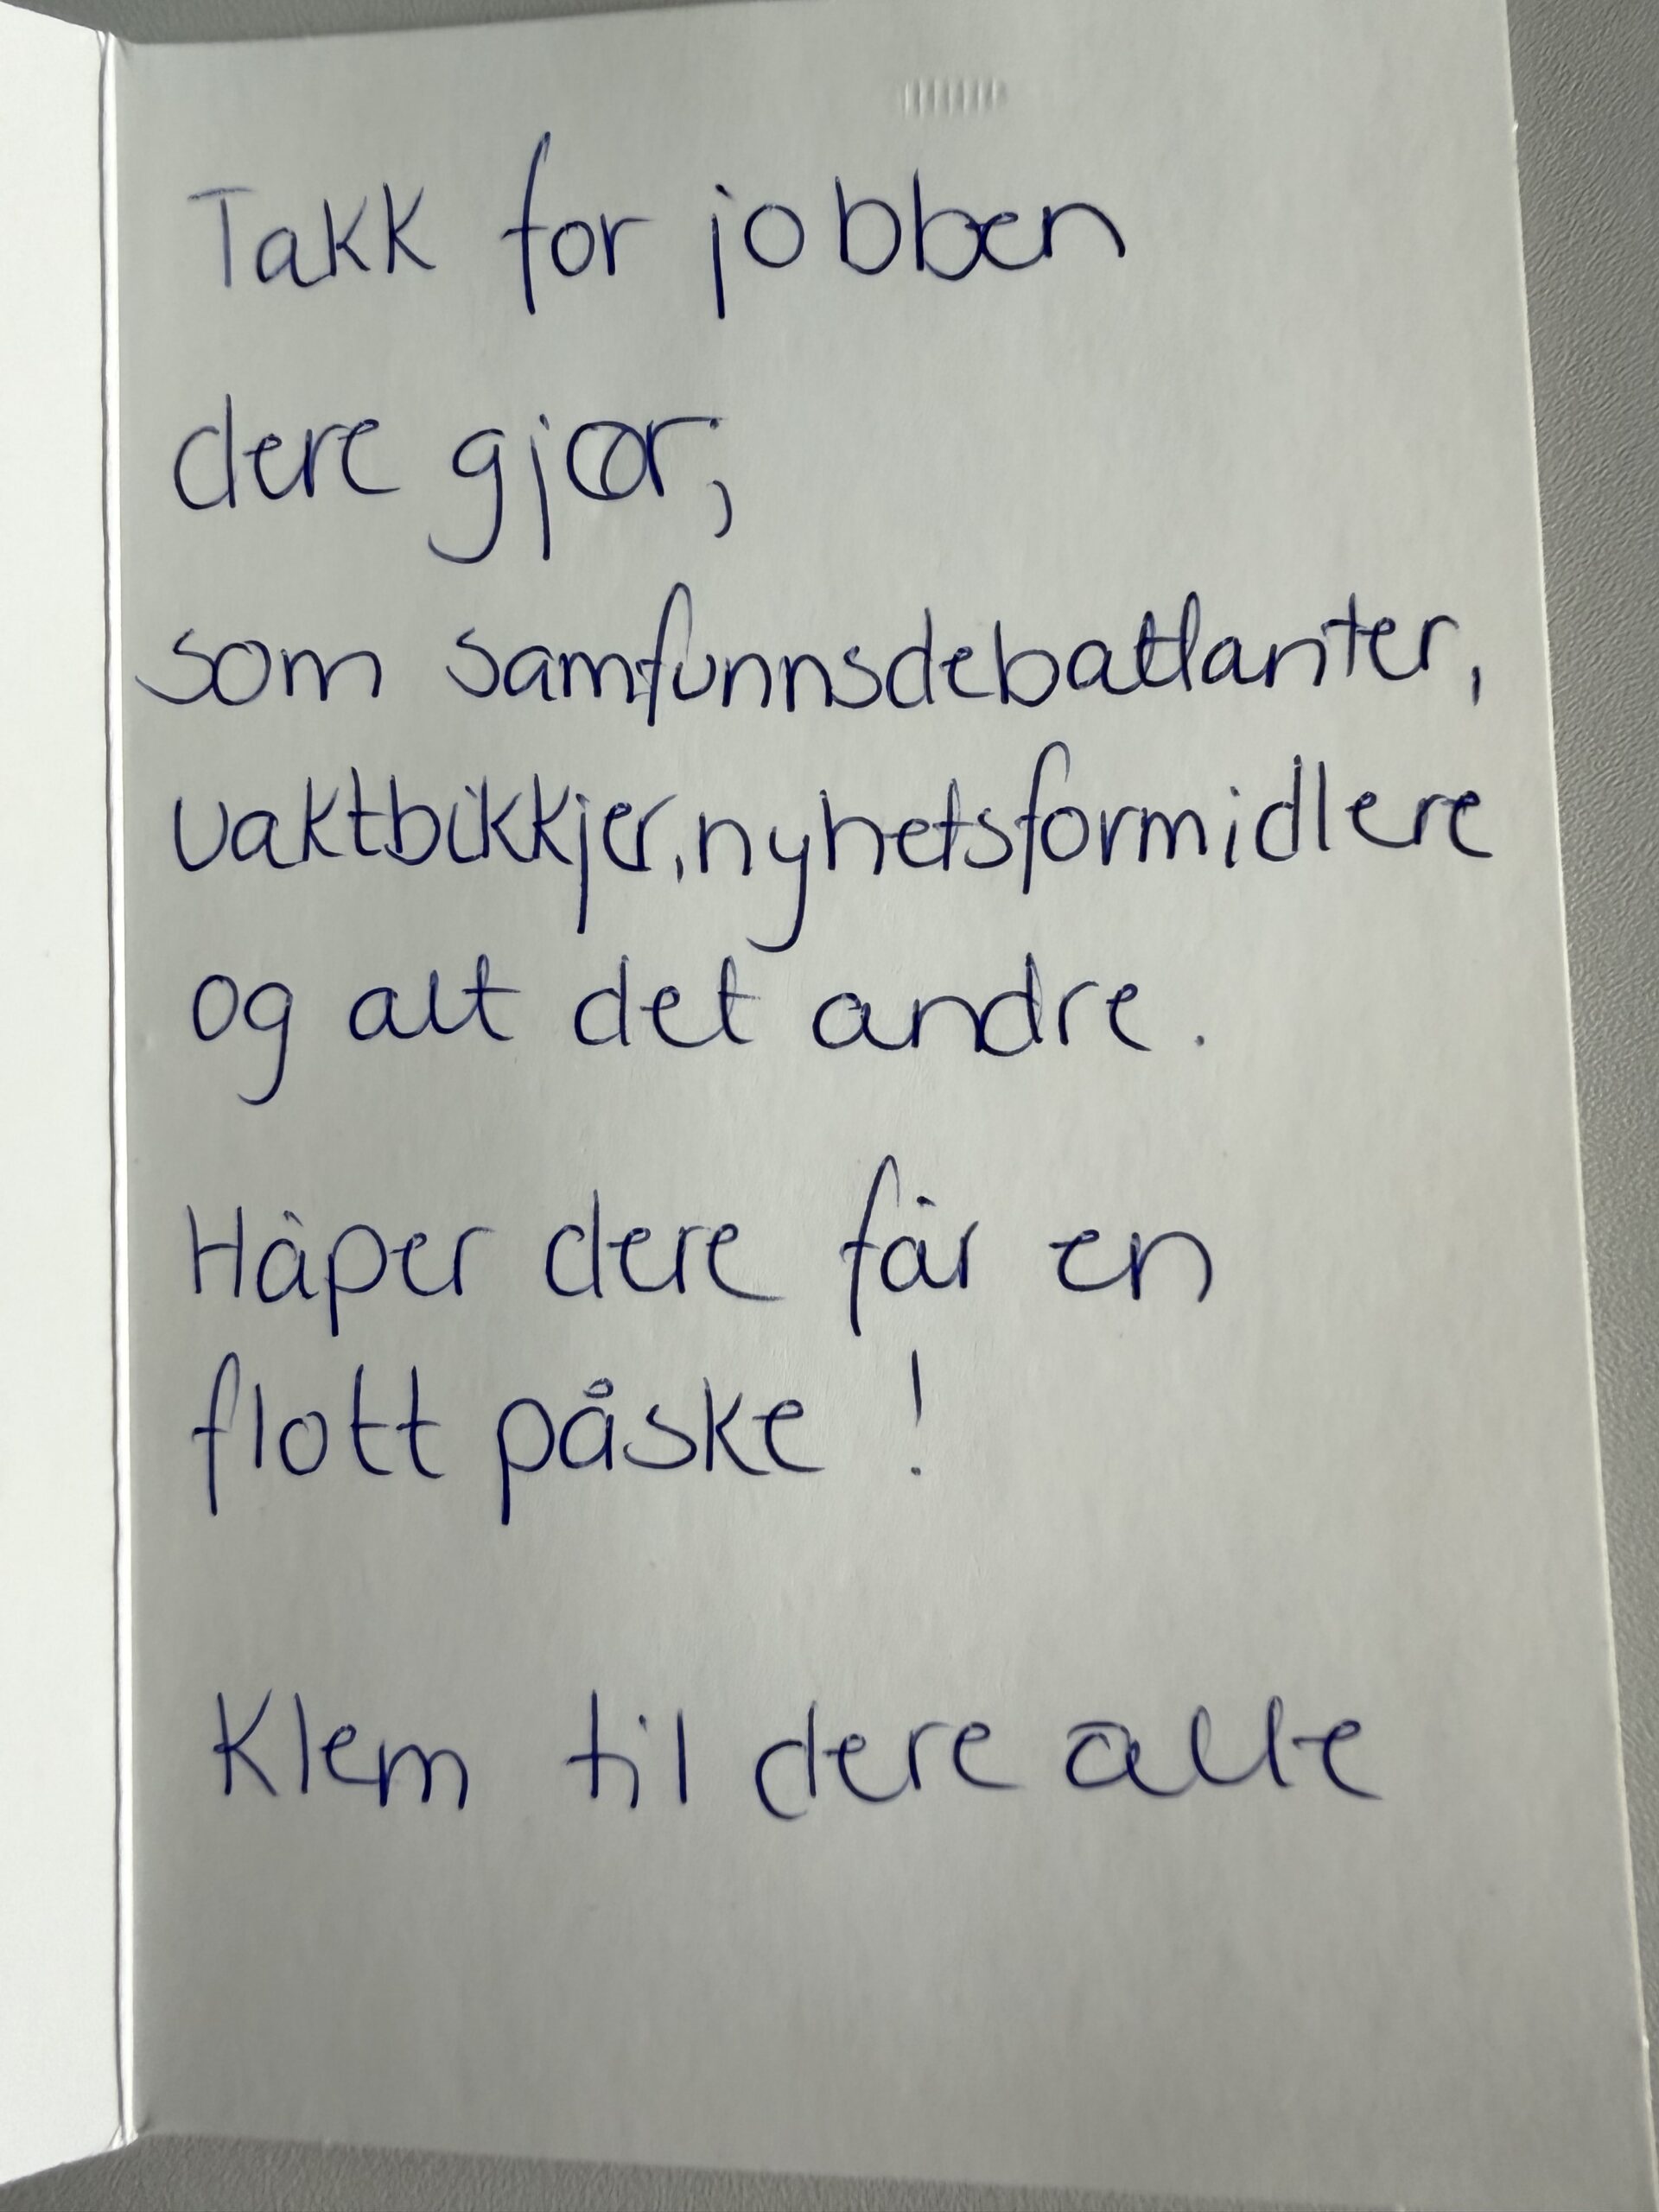 Takk for jobben
dere gjør;
som samfunnsdebattanter,
vaktbikkjer, nyhetsformidlere
og alt det andre.
Håper dere får en
flott påske !
Klem til dere alle